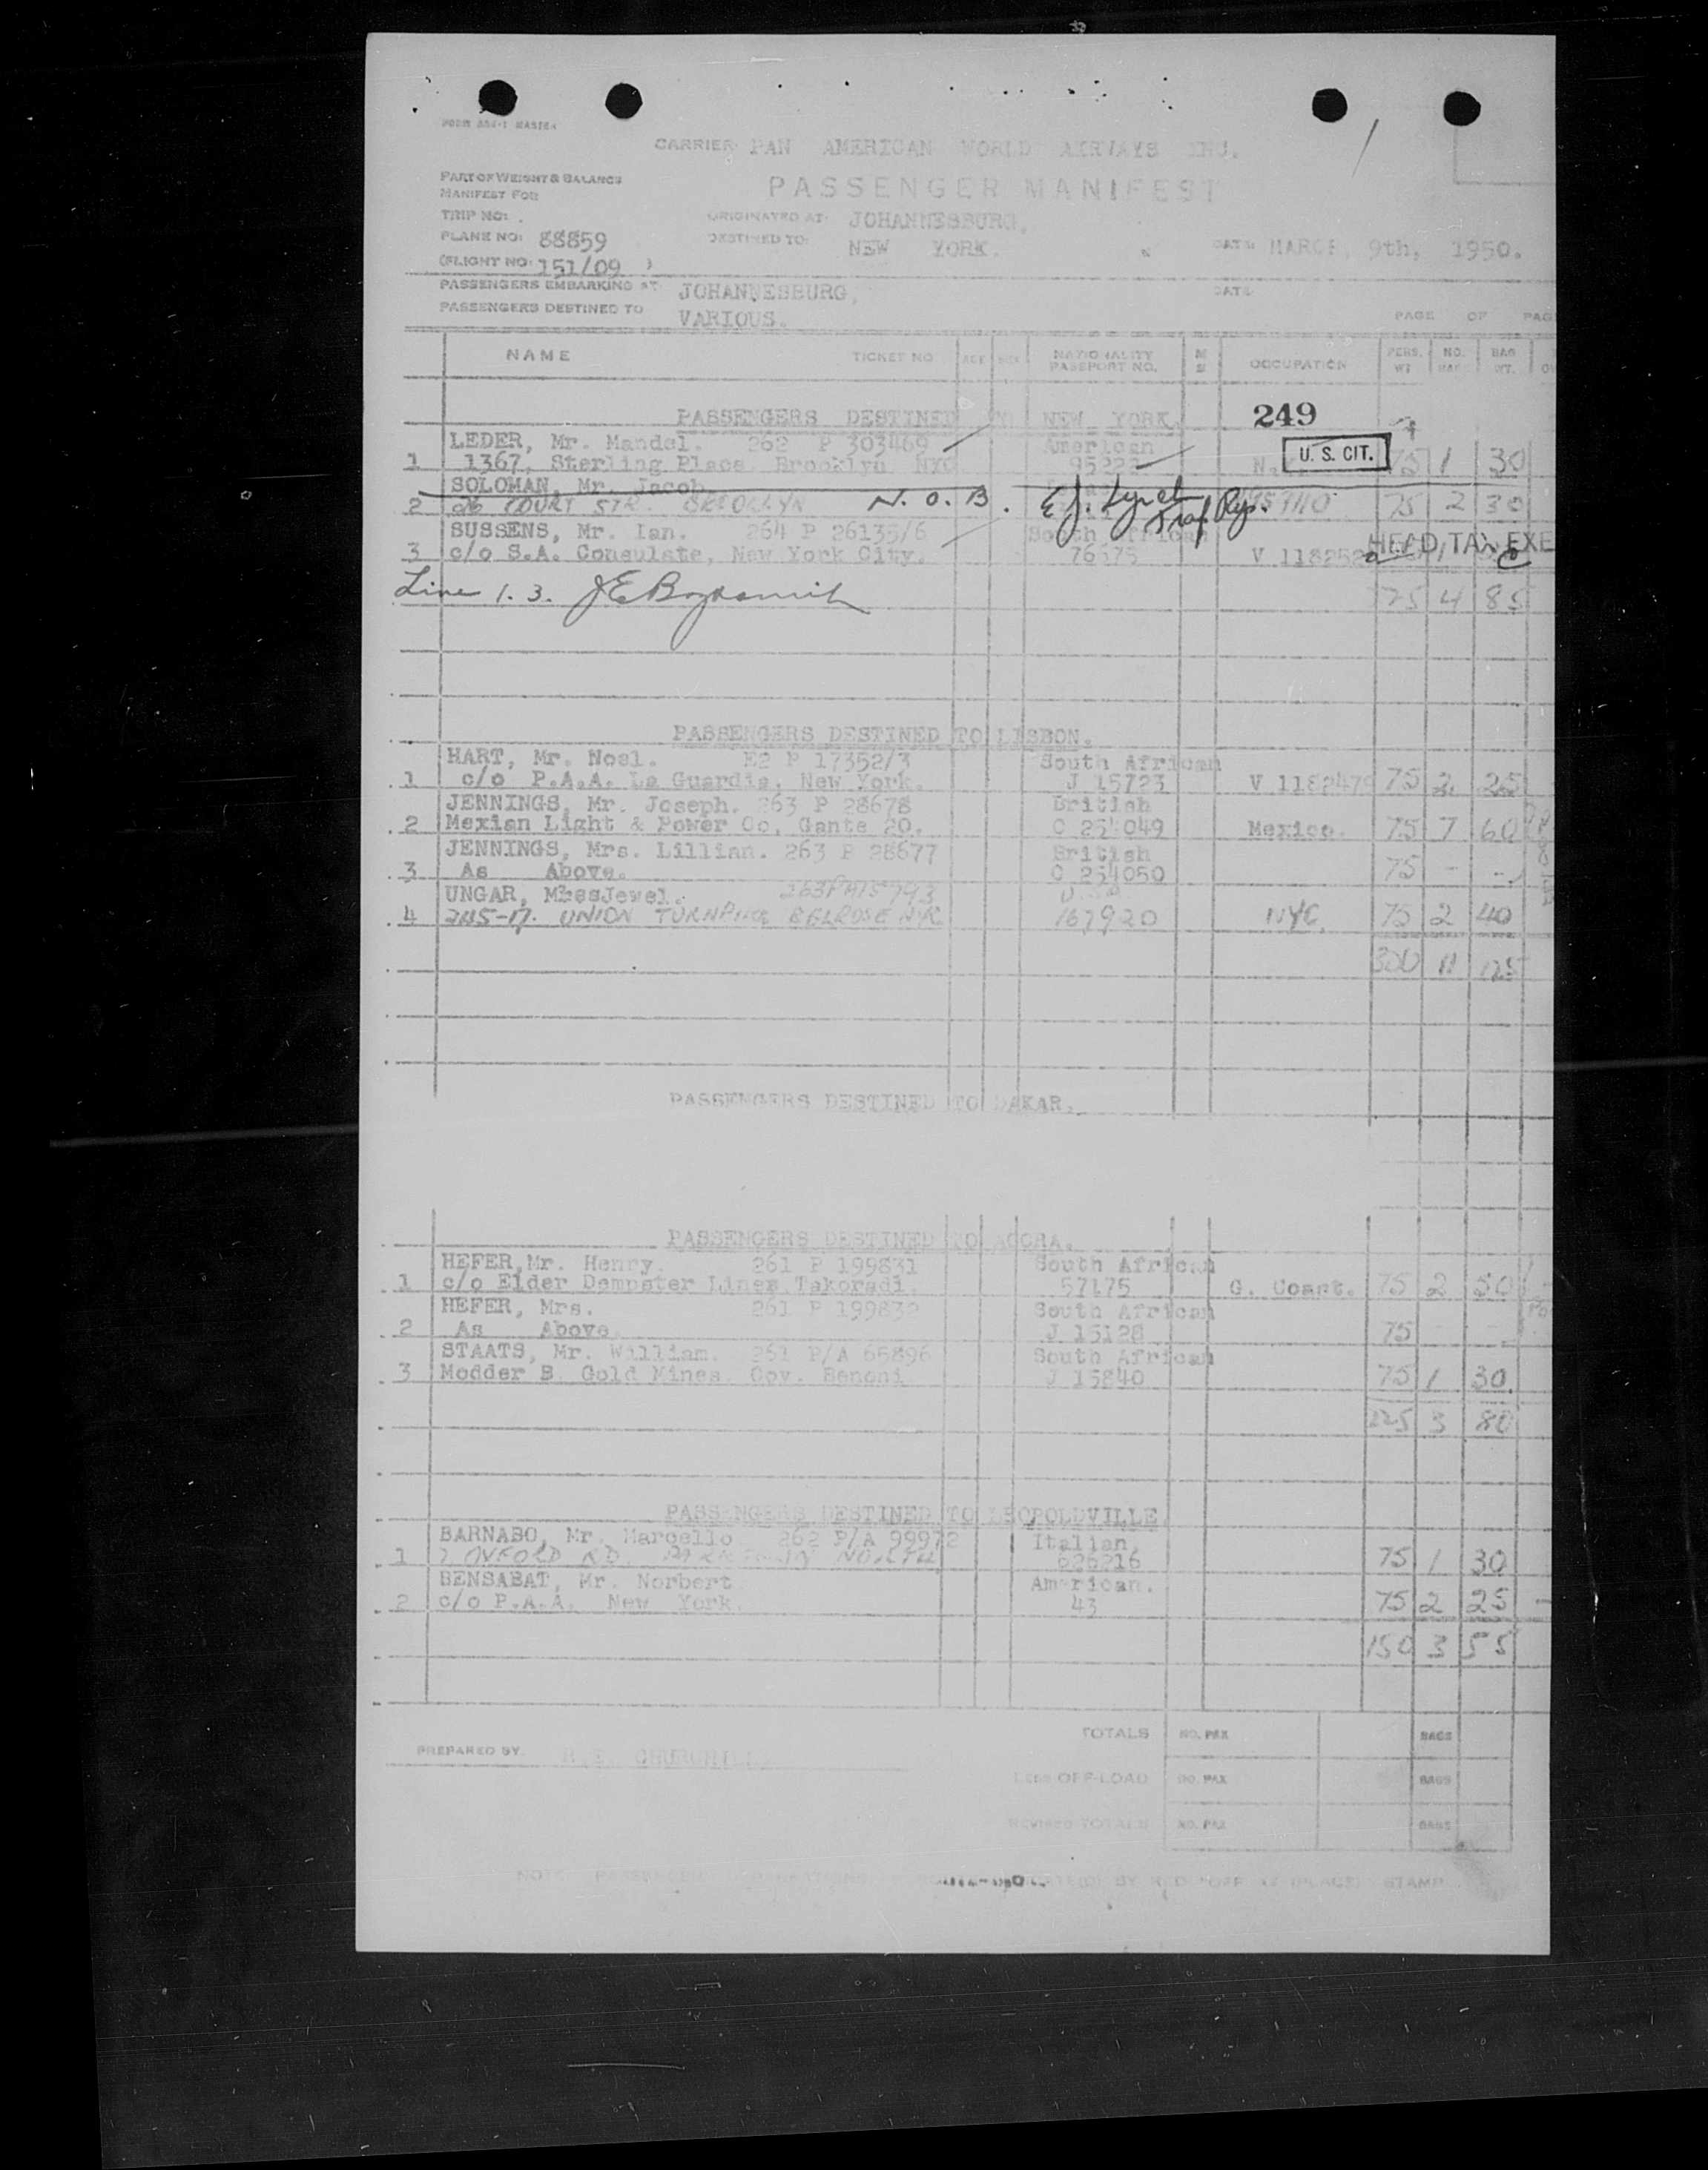 FORM MASTER
CARRIER: PAN AMERICAN WORLD AIRWAYS INC.
PART OF WEIGHT & BALANCE
MANIFEST FOR:
PASSENGER MANIFEST
TRIP NO:
ORIGINATED AT: JOHANNESBURG,
PLANE NO: 88859
DESTINED TO: NEW YORK.
DATE: MARCH, 9th, 1950.
(FLIGHT NO: 151/09 )
PASSENGERS EMBARKING AT JOHANNESBURG, DATE
PASSENGERS DESTINED TO VARIOUS.
PAGE OF PAG
NAME TICKET NO. AGE SEX NATIONALITY PASSPORT NO. M S OCCUPATION PERS. WT NO. BAG. BAG WT.
PASSENGERS DESTINED TO NEW YORK. 249
LEDER, Mr. Mandel. 262 P 303469 American
1 1367, Sterling Place, Brooklyn NYC U. S. CIT. 75 1 30
SOLOMAN, Mr. Jacob.
2 COURT STR. BROOKLYN N. O. B. E J. Lynch Traf Rep. 75 2 30
SUSSENS, Mr. Ian. 264 P 26135/6 South African
3 c/o S.A. Consulate, New York City. 76575 HEAD TAX EXE
Line 1. 3. 4 85
PASSENGERS DESTINED TO LISBON.
HART, Mr. Noel. E2 P 17352/3 South African
1 c/o P.A.A. La Guardia, New York. J 15723 V 1182479 75 2 25
JENNINGS, Mr. Joseph. 263 P 28678 British
2 Mexian Light & Power Co, Gante 20. C 254049 Mexico. 75 7 60
JENNINGS, Mrs. Lillian. 263 P 28677 British
3 As Above. C 254050 75 - -
UNGAR, MissJewel.
4 245-17. UNION TURNPIKE BELROSE N.Y. 167920 NYC. 75 2 40
300 11 125
PASSENGERS DESTINED TO DAKAR.
PASSENGERS DESTINED TO ACCRA.
HEFER, Mr. Henry. 261 P 199831 South African
1 c/o Elder Dempster Lines, Takoradi. 57175 G. Coast. 75 2 50
HEFER, Mrs. 261 P 199832 South African
2 As Above. J 15128 75 - -
STAATS, Mr. William. 261 P/A 65896 South African
3 Modder B. Gold Mines. Gov. Benoni J 15840 75 1 30
225 3 80
PASSENGERS DESTINED TO LEOPOLDVILLE.
BARNABO, Mr. Marcello 262 P/A 99972 Italian,
1 7 OXFORD RD. NORTH 626216 75 1 30
BENSABAT, Mr. Norbert. American.
2 c/o P.A.A. New York. 43 75 2 25
150 3 55
TOTALS NO. PAX BAGS
PREPARED BY. R.E. CHURCHILL.
LESS OFF-LOAD NO. PAX BAGS
REVISED TOTALS NO. PAX BAGS